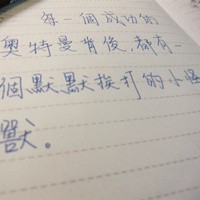 每一個成功的
奧特曼背後,都有一
個默默挨打的小怪
獸。